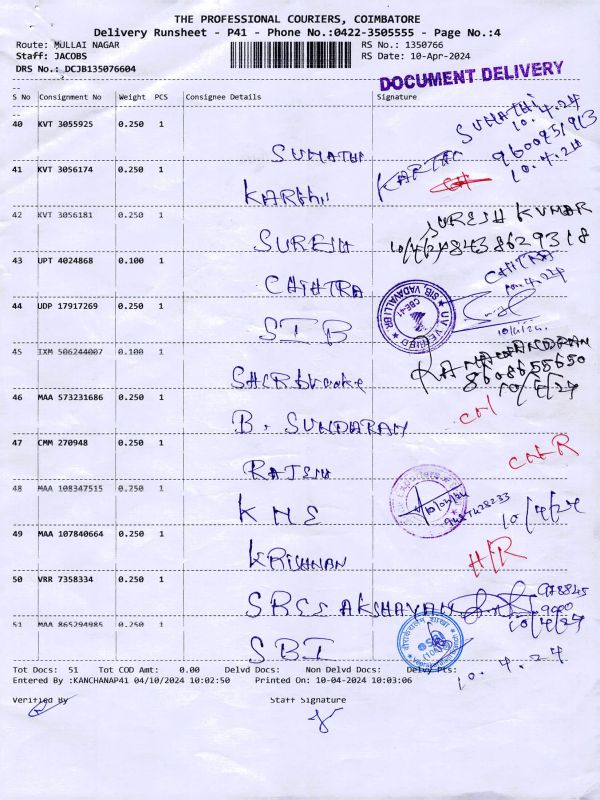 THE PROFESSIONAL COURIERS, COIMBATORE
Delivery Runsheet - P41 - Phone No.:0422-3505555 - Page No.:4
Route: MULLAI NAGAR RS No.: 1350766
Staff: JACOBS RS Date: 10-Apr-2024
DRS No.: DCJB135076604
DOCUMENT DELIVERY
S No Consignment No Weight PCS Consignee Details Signature
40 KVT 3055925 0.250 1 SUMATHI SUMATHI 10.4.24
41 KVT 3056174 0.250 1 KARTHI 10.4.24
42 KVT 3056181 0.250 1 SURESH SURESH KUMAR
10/4/24 8438629318
43 UPT 4024868 0.100 1 CHITHRA CHITRA
10.4.24
44 UDP 17917269 0.250 1 SIB UV VERIFIED SIB, VADAVALLI BR. CBE-41
10/4/24.
45 IXM 506244007 0.100 1 8608655650
10/4/24
46 MAA 573231686 0.250 1 B. SUNDARAM
47 CMM 270948 0.250 1 RAJESH CNR
48 MAA 108347515 0.250 1 KMS 10/4/24
49 MAA 107840664 0.250 1 KRISHNAN H/R
50 VRR 7358334 0.250 1 AKSHAYAM
10/4/24
51 MAA 865294985 0.250 1 SBI
10.4.24
Tot Docs: 51 Tot COD Amt: 0.00 Delvd Docs: Non Delvd Docs: Delvy Pts:
Entered By :KANCHANAP41 04/10/2024 10:02:50 Printed On: 10-04-2024 10:03:06
Verified By Staff Signature